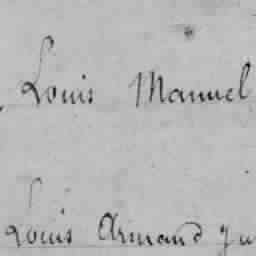 Louis Manuel
Louis Armand